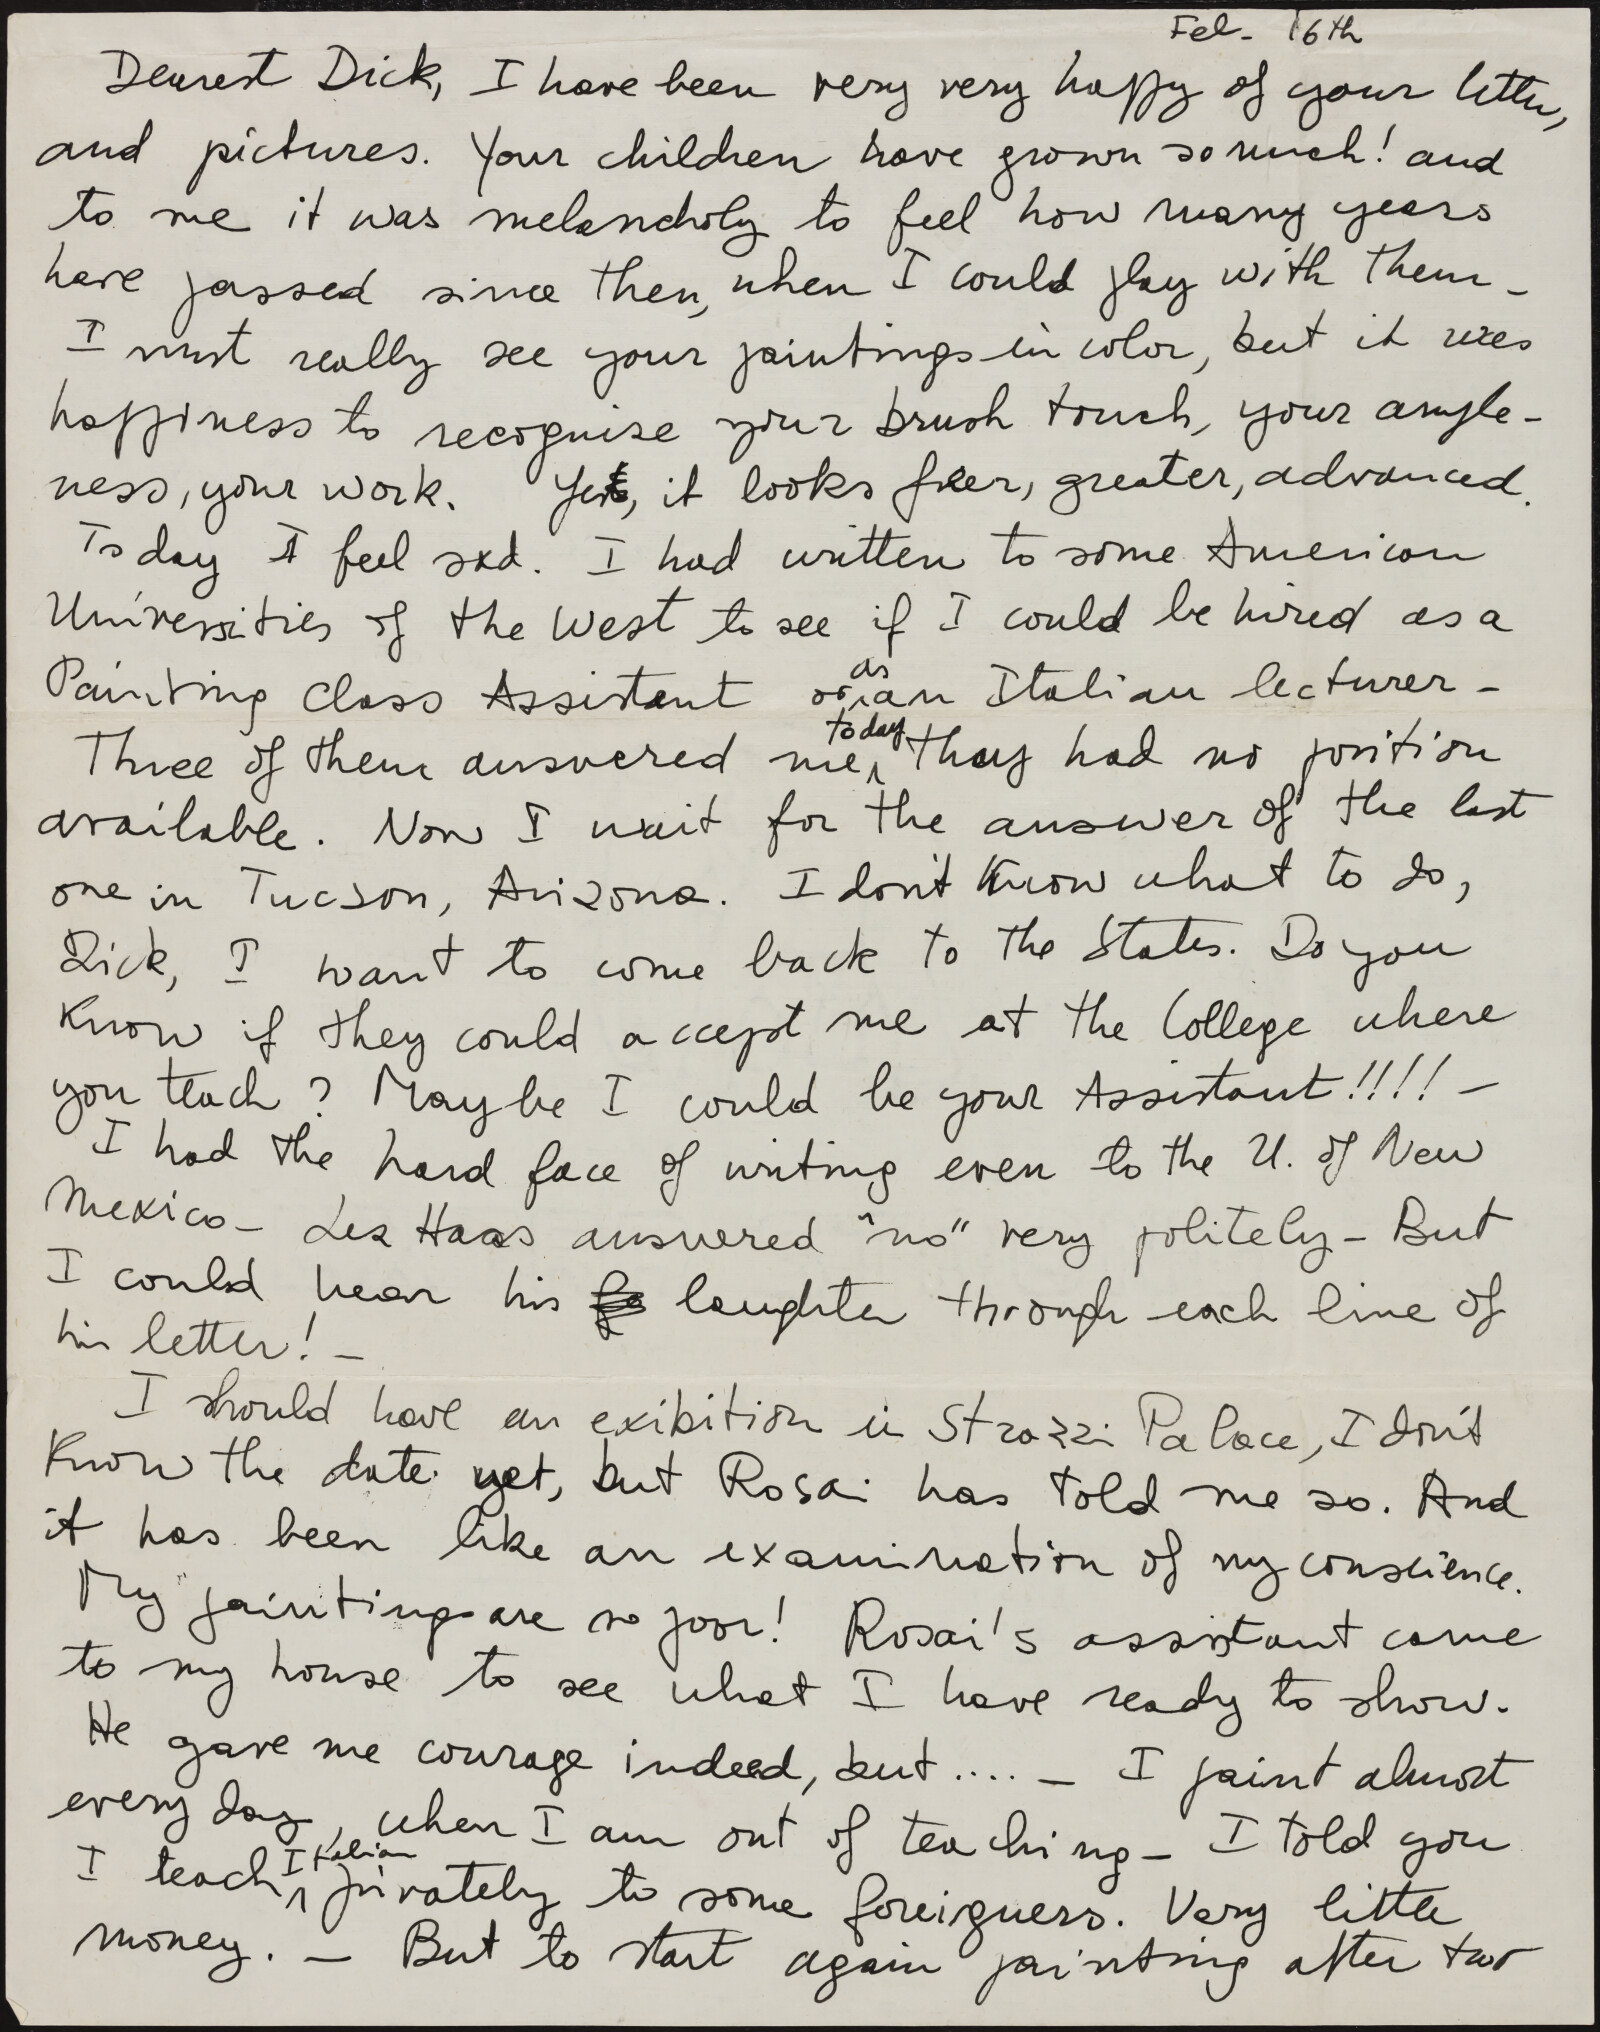 Feb. 16th
Dearest Dick, I have been very very happy of your letter,
and pictures. Your children have grown so much! and
to me it was melancholy to feel how many years
have passed since then, when I could play with them -
I must really see your paintings in color, but it was
happiness to recognise your brush touch, your ample-
ness, your work. Yes, it looks freer, greater, advanced.
Today I feel sad. I had written to some American
Universities of the West to see if I could be hired as a
Painting Class Assistant or as an Italian lecturer -
Three of them answered me today, they had no position
available. Now I wait for the answer of the last
one in Tucson, Arizona. I don't know what to do,
Dick, I want to come back to the States. Do you
know if they could accept me at the College where
you teach? Maybe I could be your Assistant!!!! -
I had the hard face of writing even to the U. of New
Mexico - Lez Haas answered "no" very politely - But
I could hear his laughter through each line of
his letter! -
I should have an exibition in Strozzi Palace, I don't
know the date yet, but Rosai has told me so. And
it has been like an examination of my conscience.
My paintings are so poor! Rosai's assistant came
to my house to see what I have ready to show.
He gave me courage indeed, but .... - I paint almost
every day, when I am out of teaching - I told you
I teach Italian privately to some foreigners. Very little
money. - But to start again painting after two